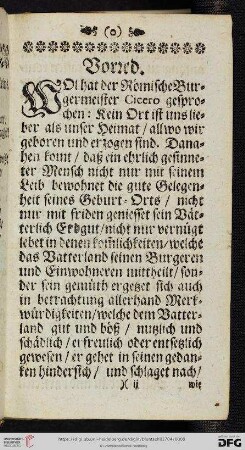 (o)
Vorred.
WOl hat der Römische Bur-
germeister Cicero gespro-
chen: Kein Ort ist uns lie-
ber als unser Heimat / allwo wir
geboren und erzogen sind. Dana-
hen komt / daß ein ehrlich gesinne-
ter Mensch nicht nur mit seinem
Leib bewohnet die gute Gelegen-
heit seines Geburt-Orts / nicht
nur mit friden geniesset sein Vät-
terlich Erbgut / nicht nur vernügt
lebet in denen komlichkeiten / welche
das Vatterland seinen Burgeren
und Einwohneren mittheilt / son-
der sein gemüth ergetzet sich auch
in betrachtung allerhand Merk-
würdigkeiten / welche dem Vatter-
land gut und böß / nuzlich und
schädlich / erfreulich oder entsetzlich
gewesen / er gehet in seinen gedan-
ken hindersich / und schlaget nach /
X ij
wie